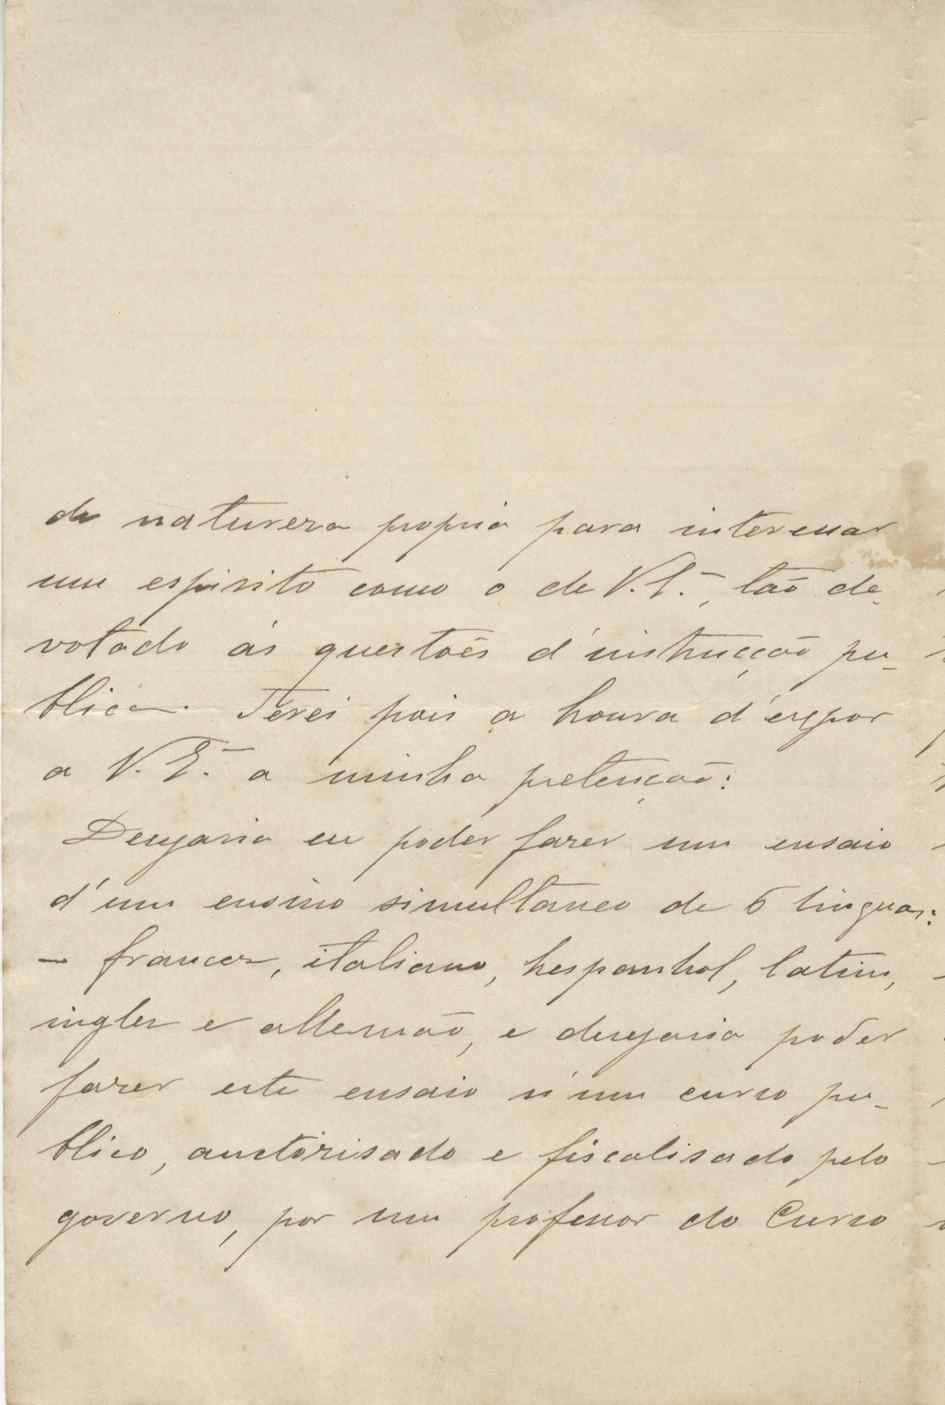 de natureza propria para interessar
um espirito como o de V. E.ª, tão de-
votado ás questões d'instrucção pu-
blica. Terei pois a honra d'expor
a V. E.ª a minha pretenção:
Desejaria eu poder fazer um ensaio
d'um ensino simultaneo de 6 linguas:
— francez, italiano, hespanhol, latim,
inglez e allemão, e desejaria poder
fazer este ensaio n'um curso pu-
blico, auctorisado e fiscalisado pelo
governo, por um professor do Curso